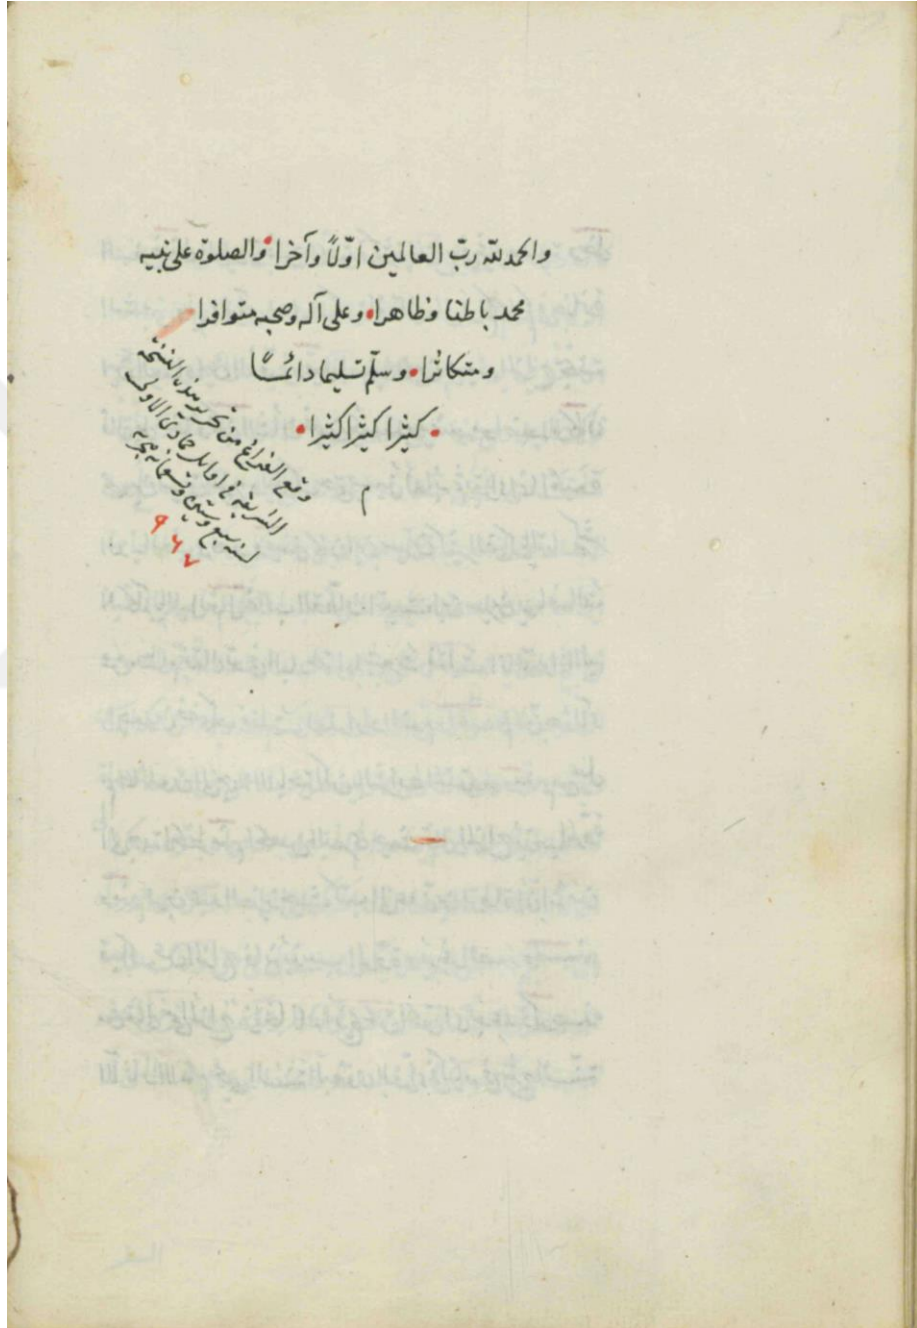 والحمد لله ربّ العالمين اوّلاً وآخرا والصلوة على نبيه
محمد باطنا وظاهرا وعلى آله وصحبه متوافرا
ومتكاثرا وسلّم تسليما دائما
كثيرا كثيرا كثيرا
م
وقع الفراغ من تحرير هذه النسخة
الشريفة في اوايل جمادى الاولى
لسنه سبع وستين وتسعمائه هجريه
٩٦٧